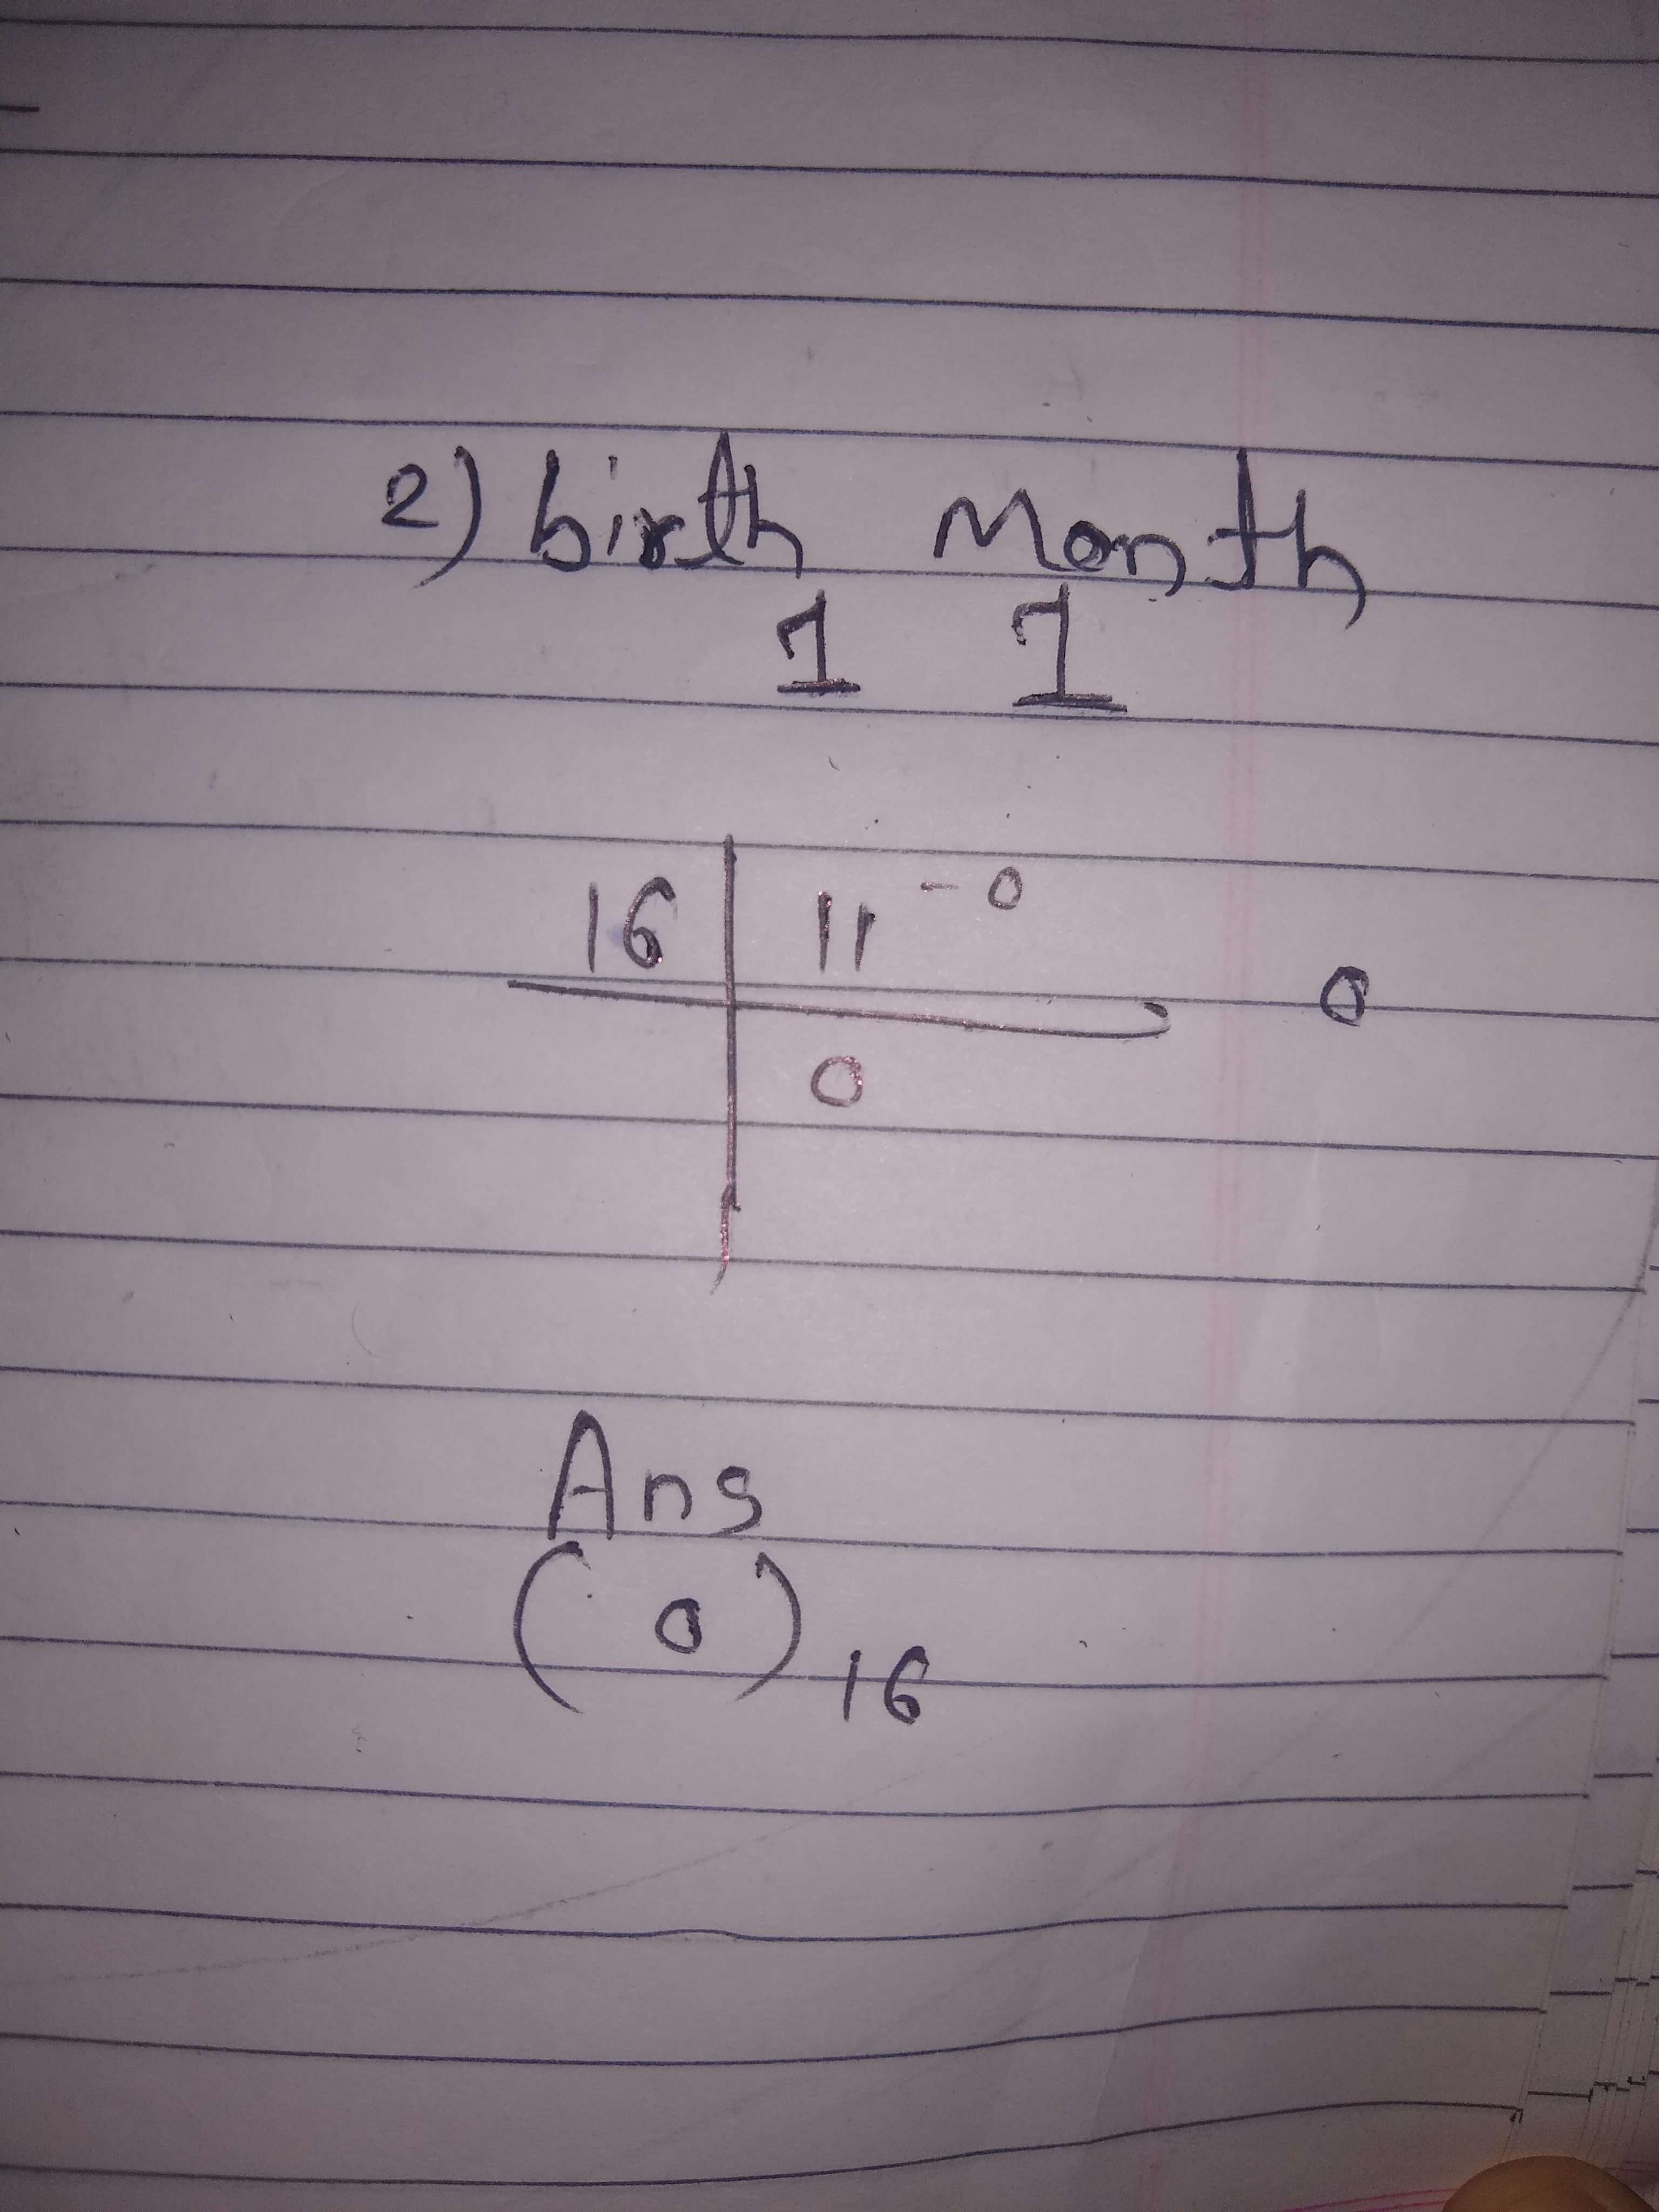 2) birth Month
1 1
16 11 - 0
0
0
Ans
(0)16